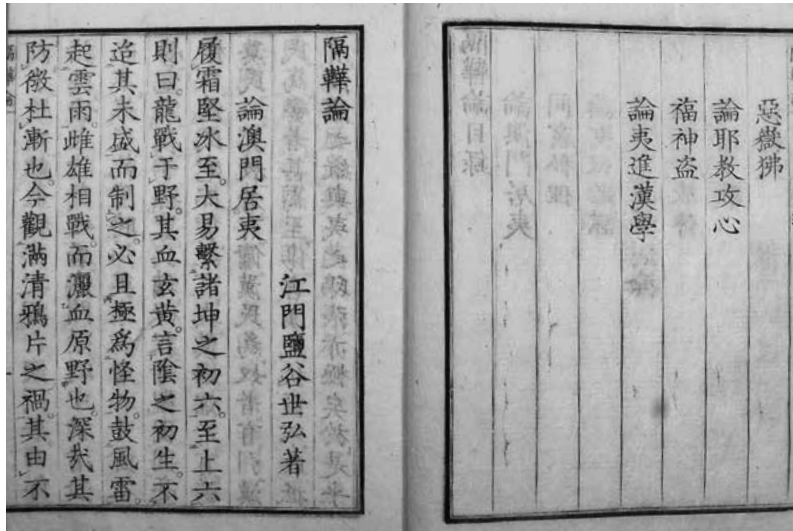 惡嶽狒
論耶教攻心
福神盗
論夷進漢學
隔鞾論
江門鹽谷世弘著
論澳門居夷
履霜堅冰至。大易繫諸坤之初六。至上六
則曰。龍戰于野。其血玄黃。言陰之初生。不
迨其未盛而制之。必且極爲怪物。鼓風雷。
起雲雨。雌雄相戰。而灑血原野也。深哉其
防微杜漸也。今觀滿清鴉片之禍。其由不